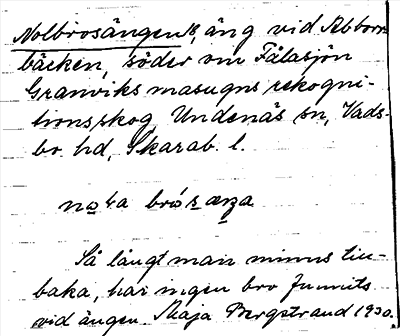 Nolbrosängen, äng vid Abborr-
bäcken, söder om Fälasjön
Granviks masugns rekogni-
tionsskog, Undenäs sn, Vads-
bo hd, Skarab. l.
Så långt man minns till-
baka, har ingen bro funnits
vid ängen. Maja Bergstrand 1930.